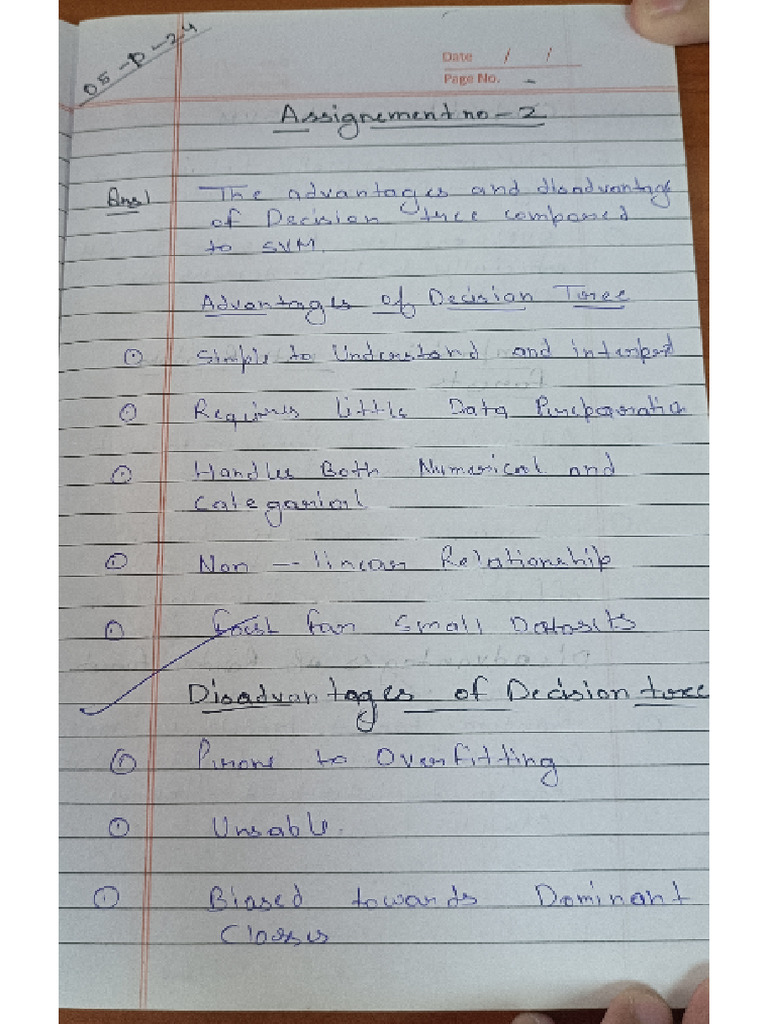 05-P-24
Date / /
Page No. -
Assignement no - 2
Ans1 The advantages and disadvantage
of Decision tree compared
to SVM.
Advantages of Decision Tree
Simple to Understand and interpred
Requires little Data Preparatio
Handles Both Numerical and
Categorial
Non - linear Relationship
Fast For Small Datasets
Disadvantages of Decision tree
Prone to Overfitting
Unsable.
Biased towards Dominant
Classes